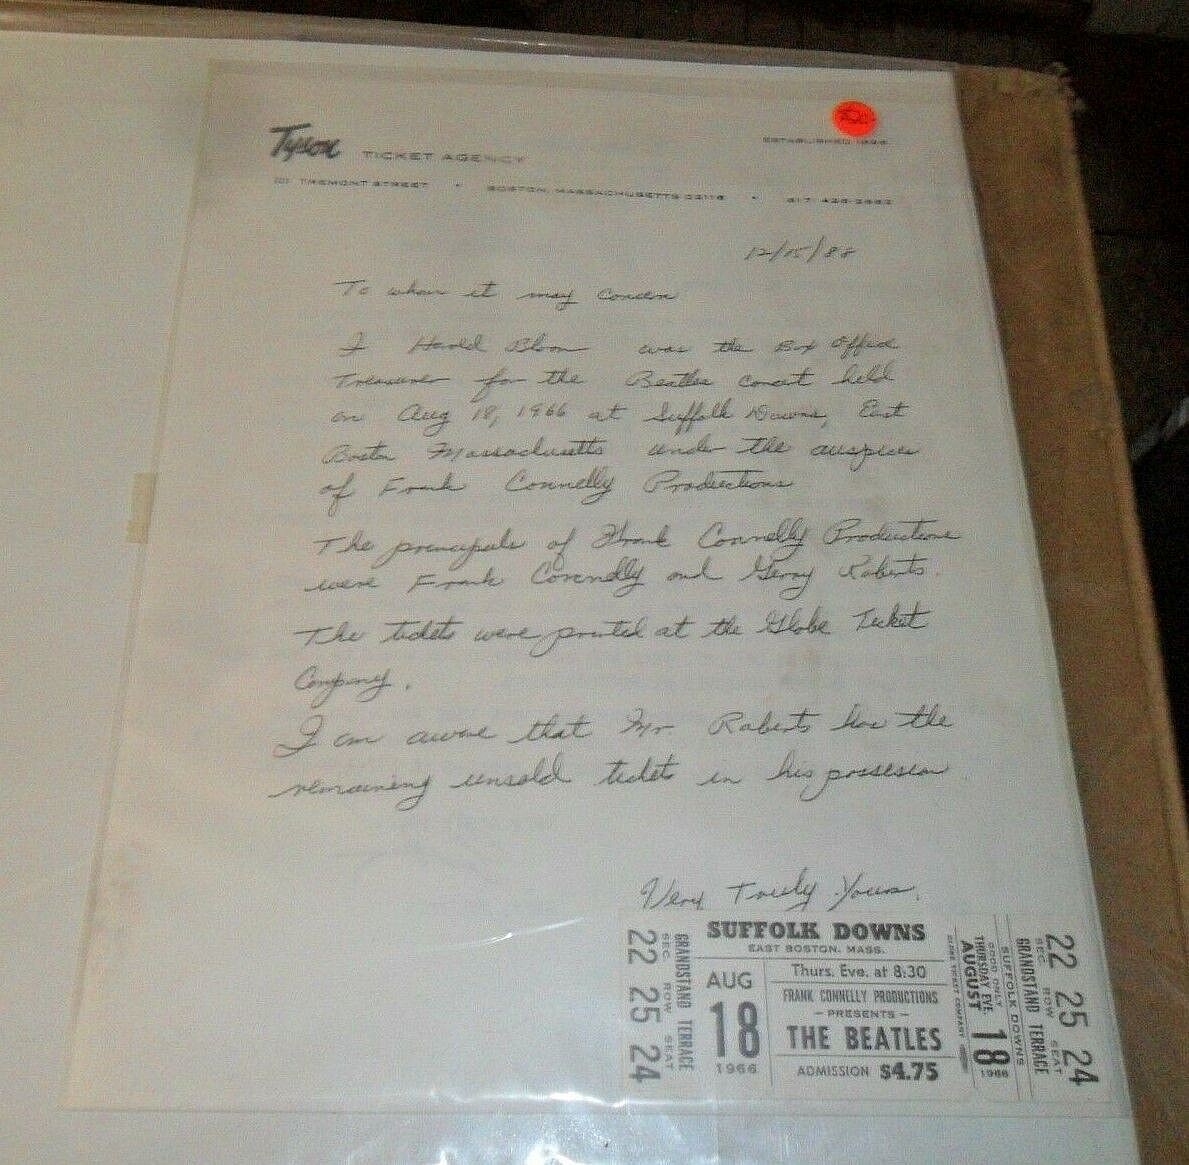 Tyson TICKET AGENCY
ESTABLISHED
TREMONT STREET • BOSTON, MASSACHUSETTS 02116 • 617
12/15/88
To whom it may Concern
I Harold Bloom was the Box Office
Treasurer for the Beatles concert held
on Aug 18, 1966 at Suffolk Downs, East
Boston Massachusetts under the auspices
of Frank Connelly Productions
The principals of Frank Connelly Productions
were Frank Connelly and Gerry Roberts.
The tickets were printed at the Globe Ticket
Company.
I am aware that Mr. Roberts has the
remaining unsold tickets in his possesion
Very Truly Yours,
22 25 24
SEC ROW SEAT
GRANDSTAND TERRACE
SUFFOLK DOWNS
EAST BOSTON, MASS.
AUG
18
1966
Thurs. Eve. at 8:30
FRANK CONNELLY PRODUCTIONS
– PRESENTS –
THE BEATLES
ADMISSION $4.75
GLOBE TICKET COMPANY
AUGUST 18
1966
THURSDAY EVE.
GOOD ONLY
SUFFOLK DOWNS
GRANDSTAND TERRACE
SEC ROW SEAT
22 25 24